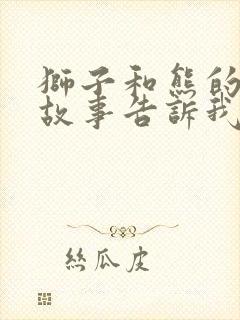 獅子和熊的
故事告訴我
絲瓜皮